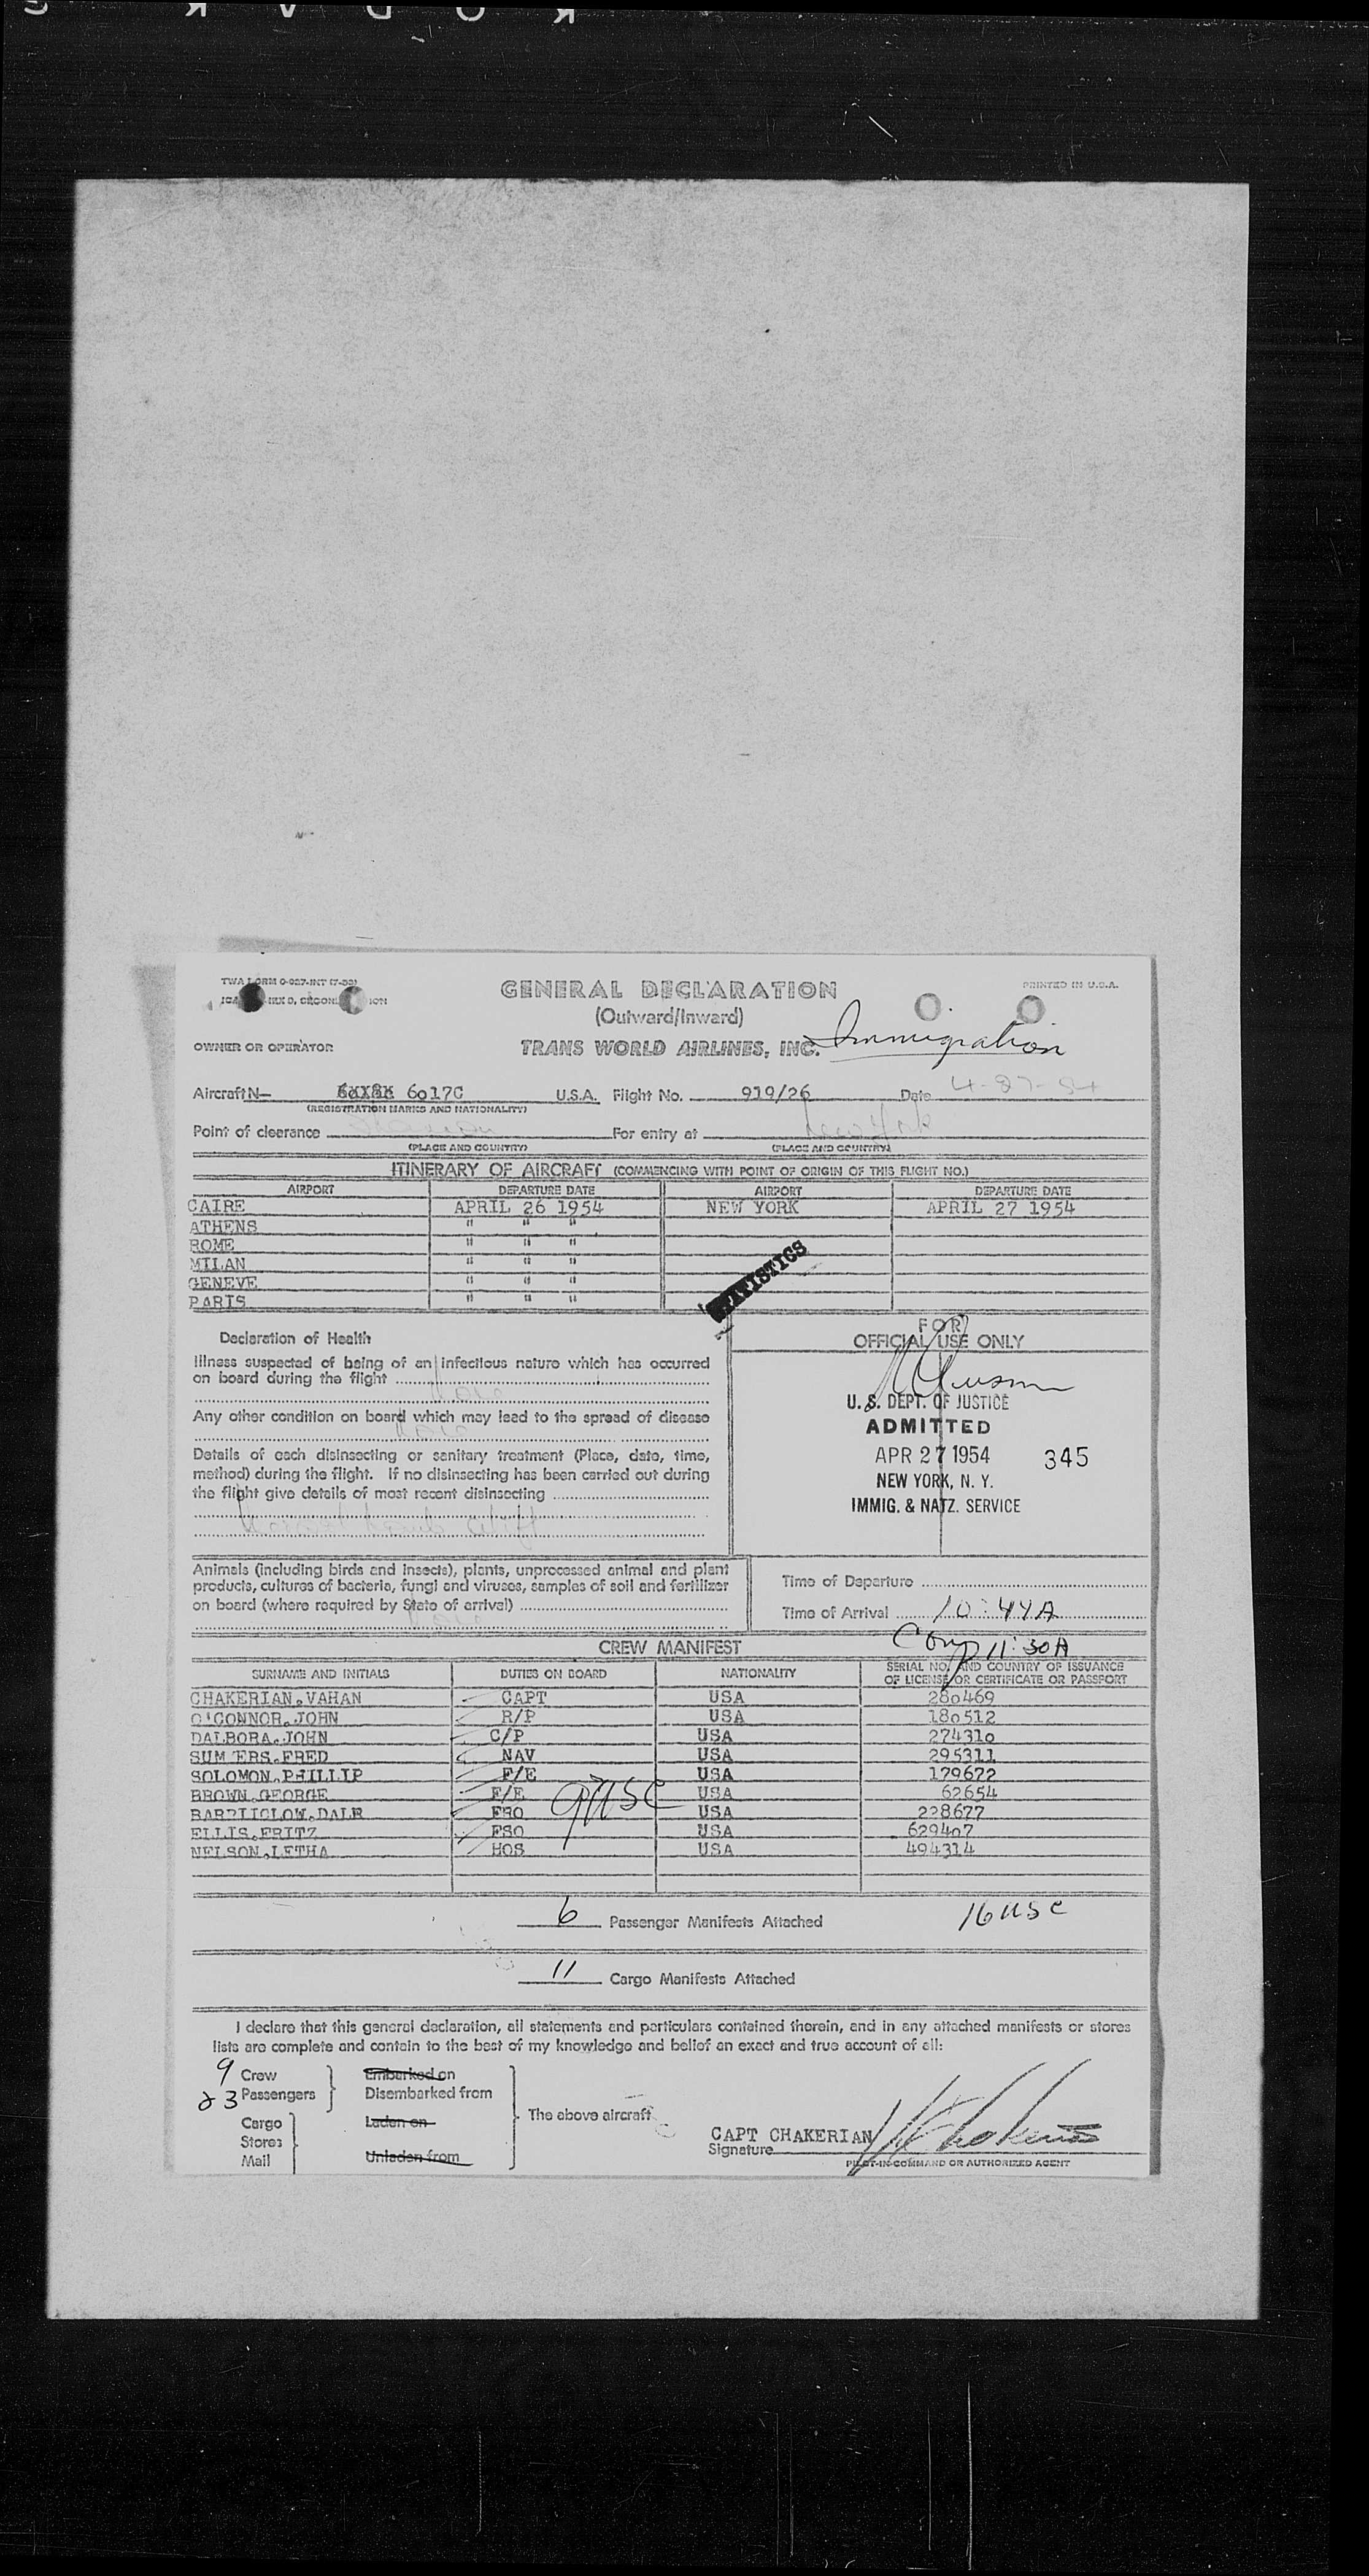 TWA FORM 0-927-INT (7-53)
OWNER OR OPERATOR
GENERAL DECLARATION
(Outward/Inward)
TRANS WORLD AIRLINES, INC.
PRINTED IN U.S.A.
Immigration
Aircraft N— 6017C U.S.A. Flight No. 919/26 Date 4-27-54
(REGISTRATION MARKS AND NATIONALITY)
Point of clearance Shannon For entry at New York
(PLACE AND COUNTRY) (PLACE AND COUNTRY)
ITINERARY OF AIRCRAFT (COMMENCING WITH POINT OF ORIGIN OF THIS FLIGHT NO.)
AIRPORT DEPARTURE DATE AIRPORT DEPARTURE DATE
CAIRE APRIL 26 1954 NEW YORK APRIL 27 1954
ATHENS " " "
ROME " " "
MILAN " " "
GENEVE " " "
PARIS " " "
STATISTICS
Declaration of Health
Illness suspected of being of an infectious nature which has occurred
on board during the flight None
Any other condition on board which may lead to the spread of disease
None
Details of each disinsecting or sanitary treatment (Place, date, time,
method) during the flight. If no disinsecting has been carried out during
the flight give details of most recent disinsecting
FOR
OFFICIAL USE ONLY
U. S. DEPT. OF JUSTICE
ADMITTED
APR 27 1954 345
NEW YORK, N. Y.
IMMIG. & NATZ. SERVICE
Animals (including birds and insects), plants, unprocessed animal and plant
products, cultures of bacteria, fungi and viruses, samples of soil and fertilizer
on board (where required by State of arrival)
None
Time of Departure
Time of Arrival 10:44A
Comp 11:30A
CREW MANIFEST
SURNAME AND INITIALS DUTIES ON BOARD NATIONALITY SERIAL NO. AND COUNTRY OF ISSUANCE
OF LICENSE OR CERTIFICATE OR PASSPORT
CHAKERIAN,VAHAN CAPT USA 280469
O'CONNOR,JOHN R/P USA 180512
DALBORA,JOHN C/P USA 274310
SUM ERS,FRED NAV USA 295311
SOLOMON,PHILLIP F/E USA 179672
BROWN,GEORGE F/E USA 62654
DALE FRO USA 228677
ELLIS,FRITZ FSO USA 629407
NELSON,LETHA HOS USA 494314
9 USC
6 Passenger Manifests Attached 16 USC
11 Cargo Manifests Attached
I declare that this general declaration, all statements and particulars contained therein, and in any attached manifests or stores
lists are complete and contain to the best of my knowledge and belief an exact and true account of all:
9 Crew Embarked on
23 Passengers Disembarked from
Cargo Laden on The above aircraft
Stores
Mail Unladen from
CAPT CHAKERIAN
Signature
PILOT-IN-COMMAND OR AUTHORIZED AGENT